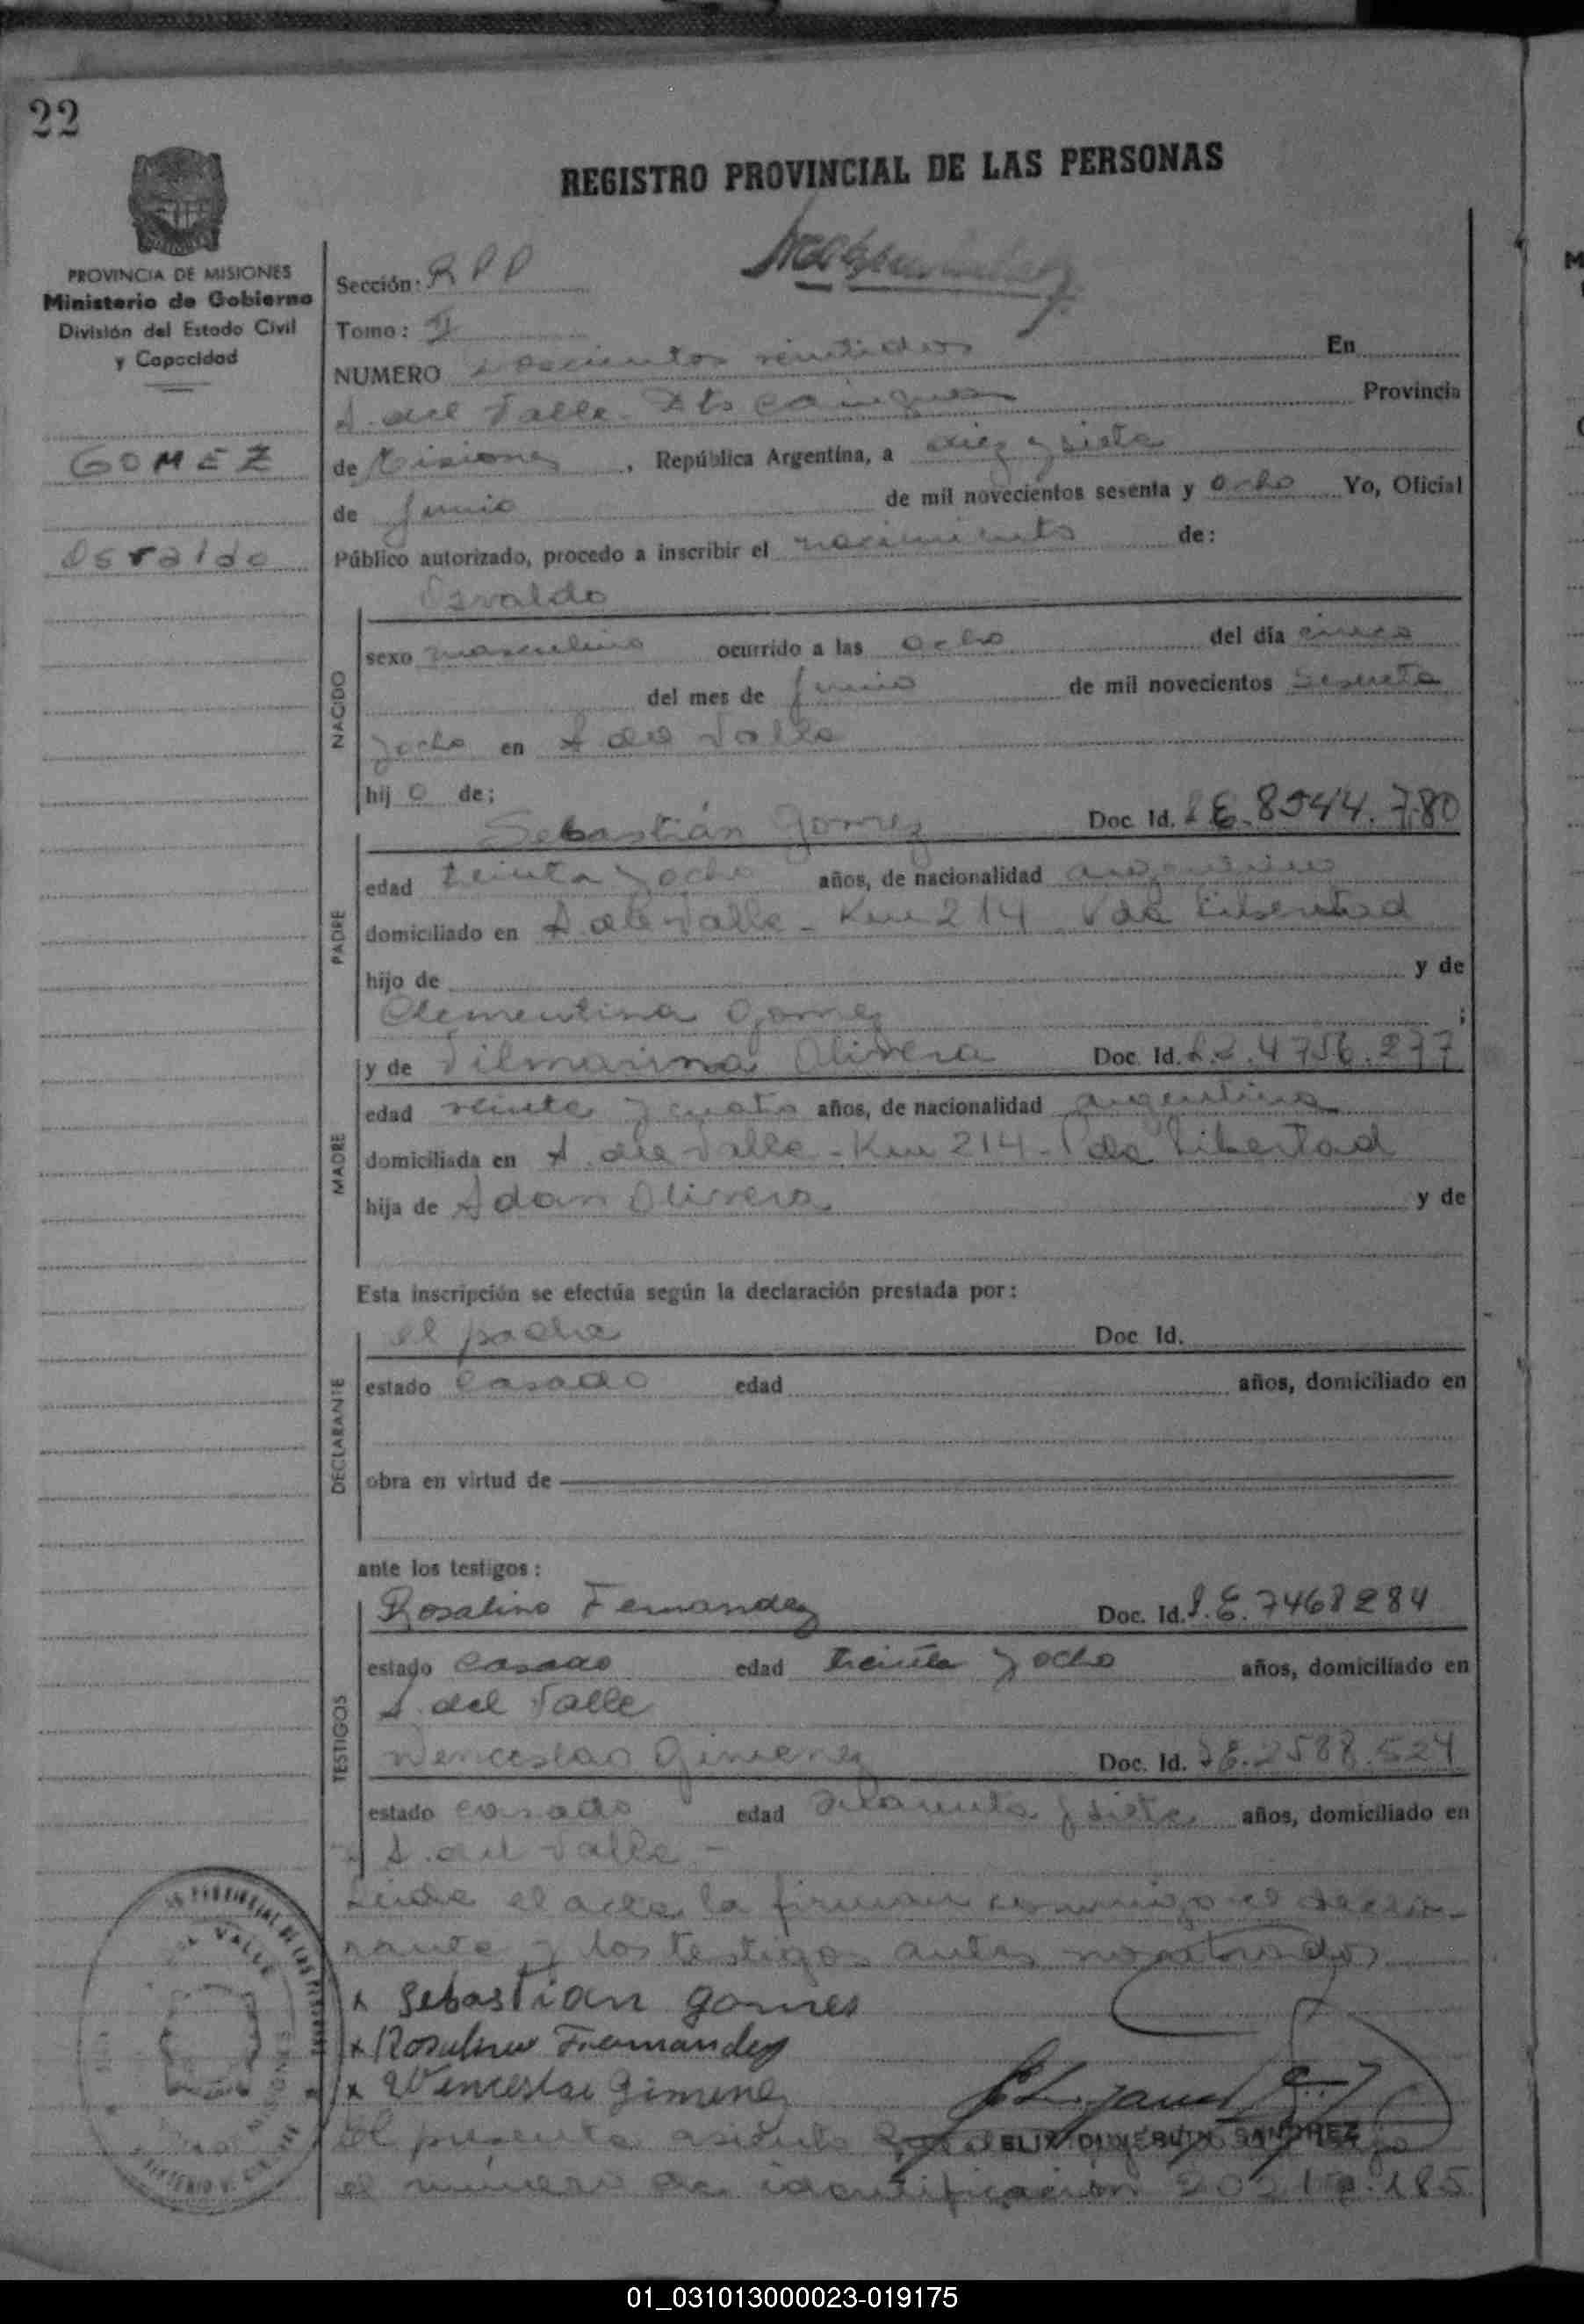 22
REGISTRO PROVINCIAL DE LAS PERSONAS
PROVINCIA DE MISIONES
Ministerio de Gobierno
División del Estado Civil
y Capacidad
GOMEZ
Osvaldo
Sección: RPP
Tomo: I
NUMERO doscientos veintidos En
A. del Valle Dto Cainguas Provincia
de Misiones, República Argentina, a diez y siete
de Junio de mil novecientos sesenta y ocho Yo, Oficial
Público autorizado, procedo a inscribir el nacimiento de:
Osvaldo
NACIDO
sexo masculino ocurrido a las ocho del día cinco
del mes de Junio de mil novecientos sesenta
y ocho en A del Valle
hijo de;
Sebastián Gomez Doc. Id. L E. 8544.780
PADRE
edad treinta y ocho años, de nacionalidad argentino
domiciliado en A del Valle - Km 214 P de Libertad
hijo de y de
Clementina Gomez ;
y de Vilmarina Olivera Doc. Id. L.C. 4756.277
MADRE
edad veinte y cuatro años, de nacionalidad argentina
domiciliada en A. del Valle - Km 214 - P de Libertad
hija de Adan Olivera y de
Esta inscripción se efectúa según la declaración prestada por:
el padre Doc. Id.
DECLARANTE
estado casado edad años, domiciliado en
obra en virtud de
ante los testigos:
Rosalino Fernandez Doc. Id. L.E. 7468284
TESTIGOS
estado casado edad treinta y ocho años, domiciliado en
A. del Valle
Wenceslao Gimenez Doc. Id. L E. 2588.524
estado casado edad cuarenta y siete años, domiciliado en
A. del Valle -
Leida el acta la firman conmigo el decla-
rante y los testigos antes nombrados
x Sebastian gomes
x Rosalino Fernandez
x Wenceslao Gimenez
El presente asiento
SANCHEZ
el número de identificación
01_031013000023-019175